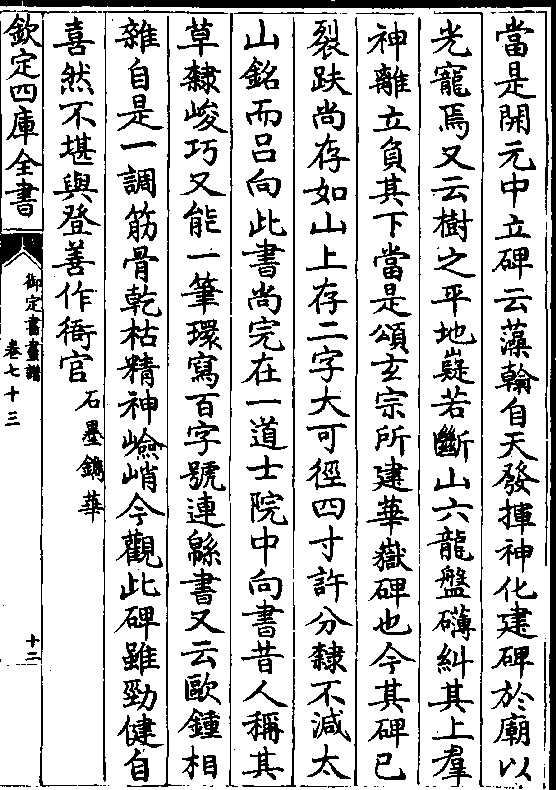 當是開元中立碑云藻翰自天發揮神化建碑於廟以
光寵焉又云樹之平地嶷若斷山六龍盤礴糾其上羣
神離立負其下當是頌玄宗所建華嶽碑也今其碑已
裂趺尚存如山上存二字大可徑四寸許分隸不減太
山銘而呂向此書尚完在一道士院中向書昔人稱其
草隸峻巧又能一筆環寫百字號連緜書又云歐鍾相
雜自是一調筋骨乾枯精神嶮峭今觀此碑雖勁健自
喜然不堪與登善作衙官
石墨鐫華
欽定四庫全書
御定書畫譜
卷七十三
十二